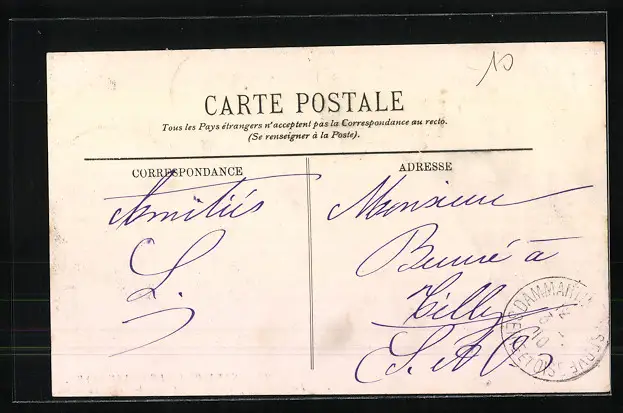 10
CARTE POSTALE
Tous les Pays étrangers n'acceptent pas la Correspondance au recto.
(Se renseigner à la Poste).
CORRESPONDANCE
Amitiés
L.
ADRESSE
Monsieur
à
Tilly
S. et O.
DAMMARTIN
SEINE ET OISE